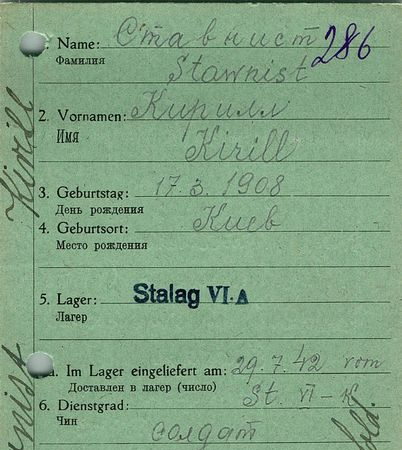 1. Name: Ставнист 286
Фамилия Stawnist
2. Vornamen: Кирилл
Имя Kirill
3. Geburtstag: 17.3.1908
День рождения
4. Geburtsort: Киев
Место рождения
5. Lager: Stalag VI-A
Лагер
a. Im Lager eingeliefert am: 29.7.42 vom
Доставлен в лагер (число) St. VI-K
6. Dienstgrad:
Чин солдат
Kirill
nist